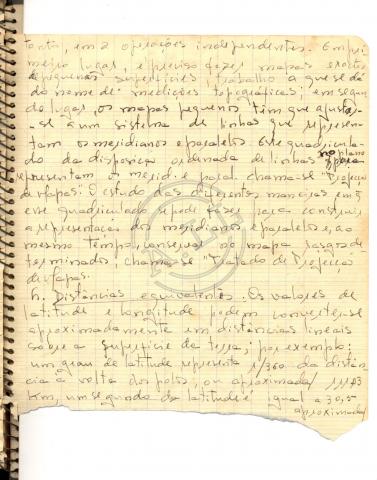 tanto, em 2 operações independentes. Em pri
meiro lugar, é preciso fazer mapas exactos
de pequenas superfícies, trabalho a que se dá
do nome de medições topográficas; em segun
do lugar, os mapas pequenos têm que ajustar-
-se a um sistema de linhas que represen-
tam os meridianos e paralelos. Este quadricula
do da disposição ordenada de linhas no plano para
representem os merid. e paral. chama-se "Projecção
de Mapas". O estudo das diferentes maneiras em q
este quadriculado se pode fazer para construir
a representação dos meridianos e paralelos e, ao
mesmo tempo, conservar no mapa rasgos de
terminados, chama-se "Tratado de Projecção
de Mapas.
h. Distâncias equivalentes. Os valores de
latitude e longitude podem converter-se
aproximadamente em distâncias lineais
sobre a superfície da terra; por exemplo:
um grau de latitude representa 1/360 da distân
cia à volta dos polos, ou aproximada/ 111,13
Km, um segundo da latitude é igual a 30,5
aproximada/